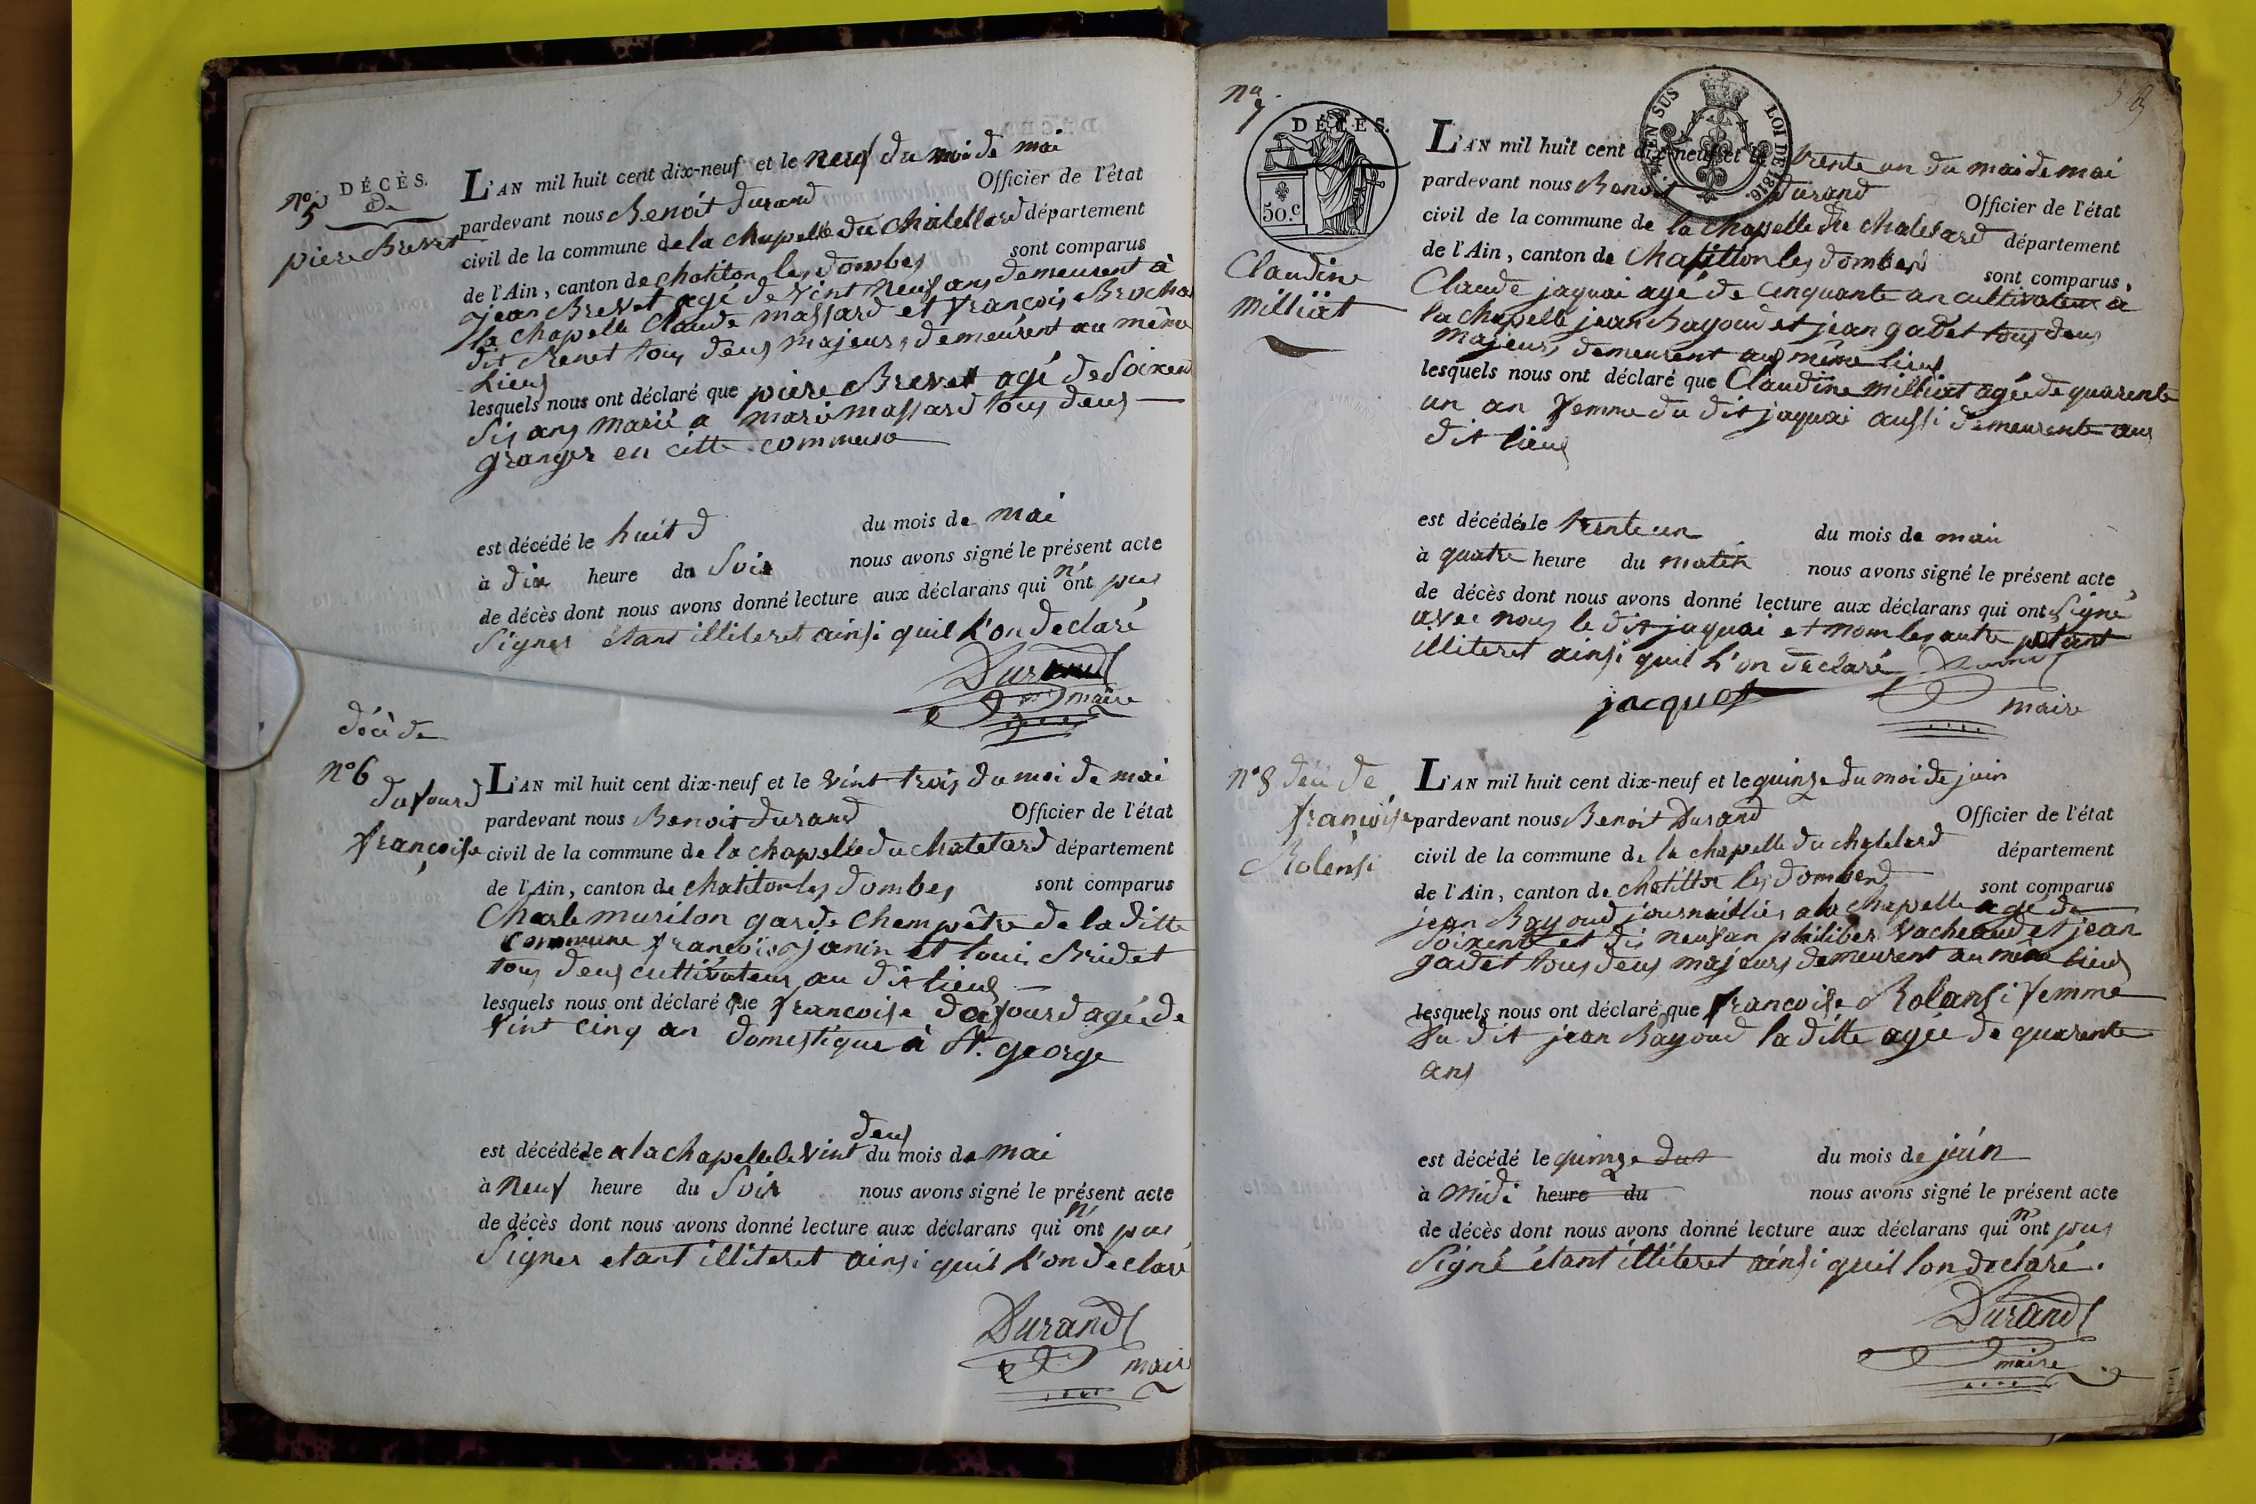 DÉCÈS.
de
nº 5
piere Brevet
L'AN mil huit cent dix-neuf et le neuf du moi de mai
pardevant nous Benoit durand Officier de l'état
civil de la commune de la chapelle du Chatellard département
de l'Ain, canton de chatilon les dombes sont comparus
jean Brevet agé de vint neuf ans demeurent à
la chapelle Claude massard et françois Brochai
dit Benet tous deus majeurs demeurent au même
Lieus
lesquels nous ont déclaré que piere Brevet agé de Soixente
Sis ans marié a mari massard tous deus
granger en citte commune
est décédé le huit du mois de mai
à dix heure du Soir nous avons signé le présent acte
de décès dont nous avons donné lecture aux déclarans qui n'ont pas
Signer étant illiteret ainsi quil l'on declaré
Durand
maire
décè de
nº 6
dufourd
françoise
L'AN mil huit cent dix-neuf et le vint trois du moi de mai
pardevant nous Benoit durand Officier de l'état
civil de la commune de la chapelle du chatelard département
de l'Ain, canton de chatilon les dombes sont comparus
Charle murilon garde Champêtre de la ditte
commune françois janin et louis Bridet
tous deus cultivateur au dit lieus
lesquels nous ont déclaré que françoise dufourd agée de
vint cinq an domestique à St. george
est décédé de a la chapelle le vint deus du mois de mai
à neuf heure du Soir nous avons signé le présent acte
de décès dont nous avons donné lecture aux déclarans qui n'ont pas
Signer etant illiteret ainsi quil l'on declaré
Durand
maire
nº 7
DÉCÈS.
50.c
EN SUS LOI DE 1816.
Claudine
milliat
L'AN mil huit cent dix-neuf et le trente un du moi de mai
pardevant nous Benoit durand Officier de l'état
civil de la commune de la chapelle du chatelard département
de l'Ain, canton de Chatillon les dombes sont comparus
Claude jaquai agé de cinquante an cultivateur a
la chapelle jean Bayoud et jean gadet tous deus
majeurs demeurent aus même lieus
lesquels nous ont déclaré que Claudine milliat agée de quarente
un an femme du dit jaquai aussi demeurente aus
dit lieus
est décédé le trente un du mois de mai
à quatre heure du matin nous avons signé le présent acte
de décès dont nous avons donné lecture aux déclarans qui ont Signé
avec nous le dit jaquai et nom les autre étant
illiteret ainsi quil l'on declaré Durand
jacquet
maire
nº 8 déci de
françoise
Rolensi
L'AN mil huit cent dix-neuf et le quinze du moi de juin
pardevant nous Benoit Durand Officier de l'état
civil de la commune de la chapelle du chatelard département
de l'Ain, canton de chatillon les dombes sont comparus
jean Bayoud journaillier a la chapelle agé de
Soixente et dis neuf an philiber vacheaud et jean
gadet tous deus majeurs demeurent au même lieus
lesquels nous ont déclaré que francoise Rolansi femme
Du dit jean Bayoud la ditte agée de quarente
ans
est décédé le quinze du mois de juin
à midi heure du nous avons signé le présent acte
de décès dont nous avons donné lecture aux déclarans qui n'ont pas
Signé étant illiteret ainsi quil l'on declaré.
Durand
maire